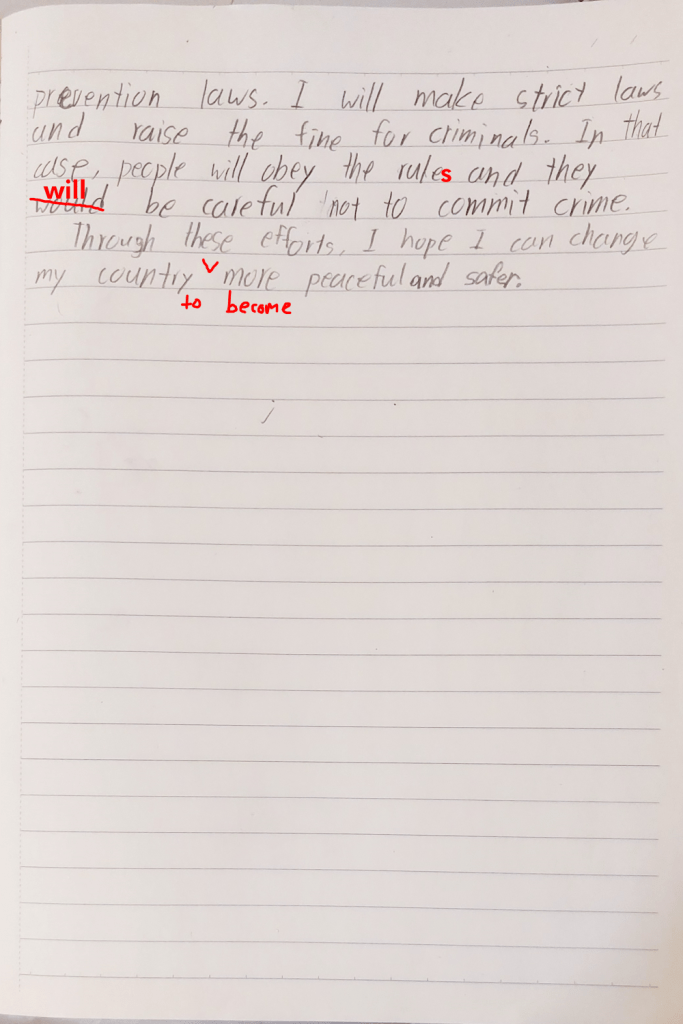 prevention laws. I will make strict laws
and raise the fine for criminals. In that
case, people will obey the rules and they
will
would be careful not to commit crime.
Through these efforts, I hope I can change
my country more peaceful and safer.
to become